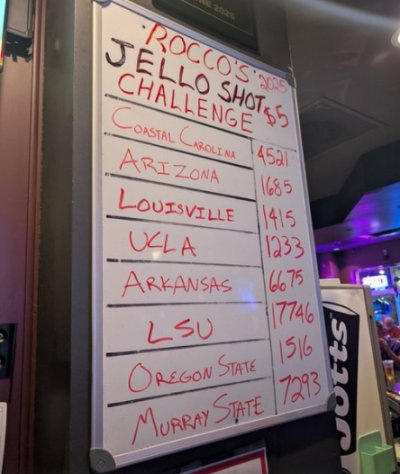 ROCCO'S 2025
JELLO SHOT
CHALLENGE $5
COASTAL CAROLINA 4521
ARIZONA 1685
LOUISVILLE 1415
UCLA 1233
ARKANSAS 6675
LSU 17746
OREGON STATE 1516
MURRAY STATE 7293